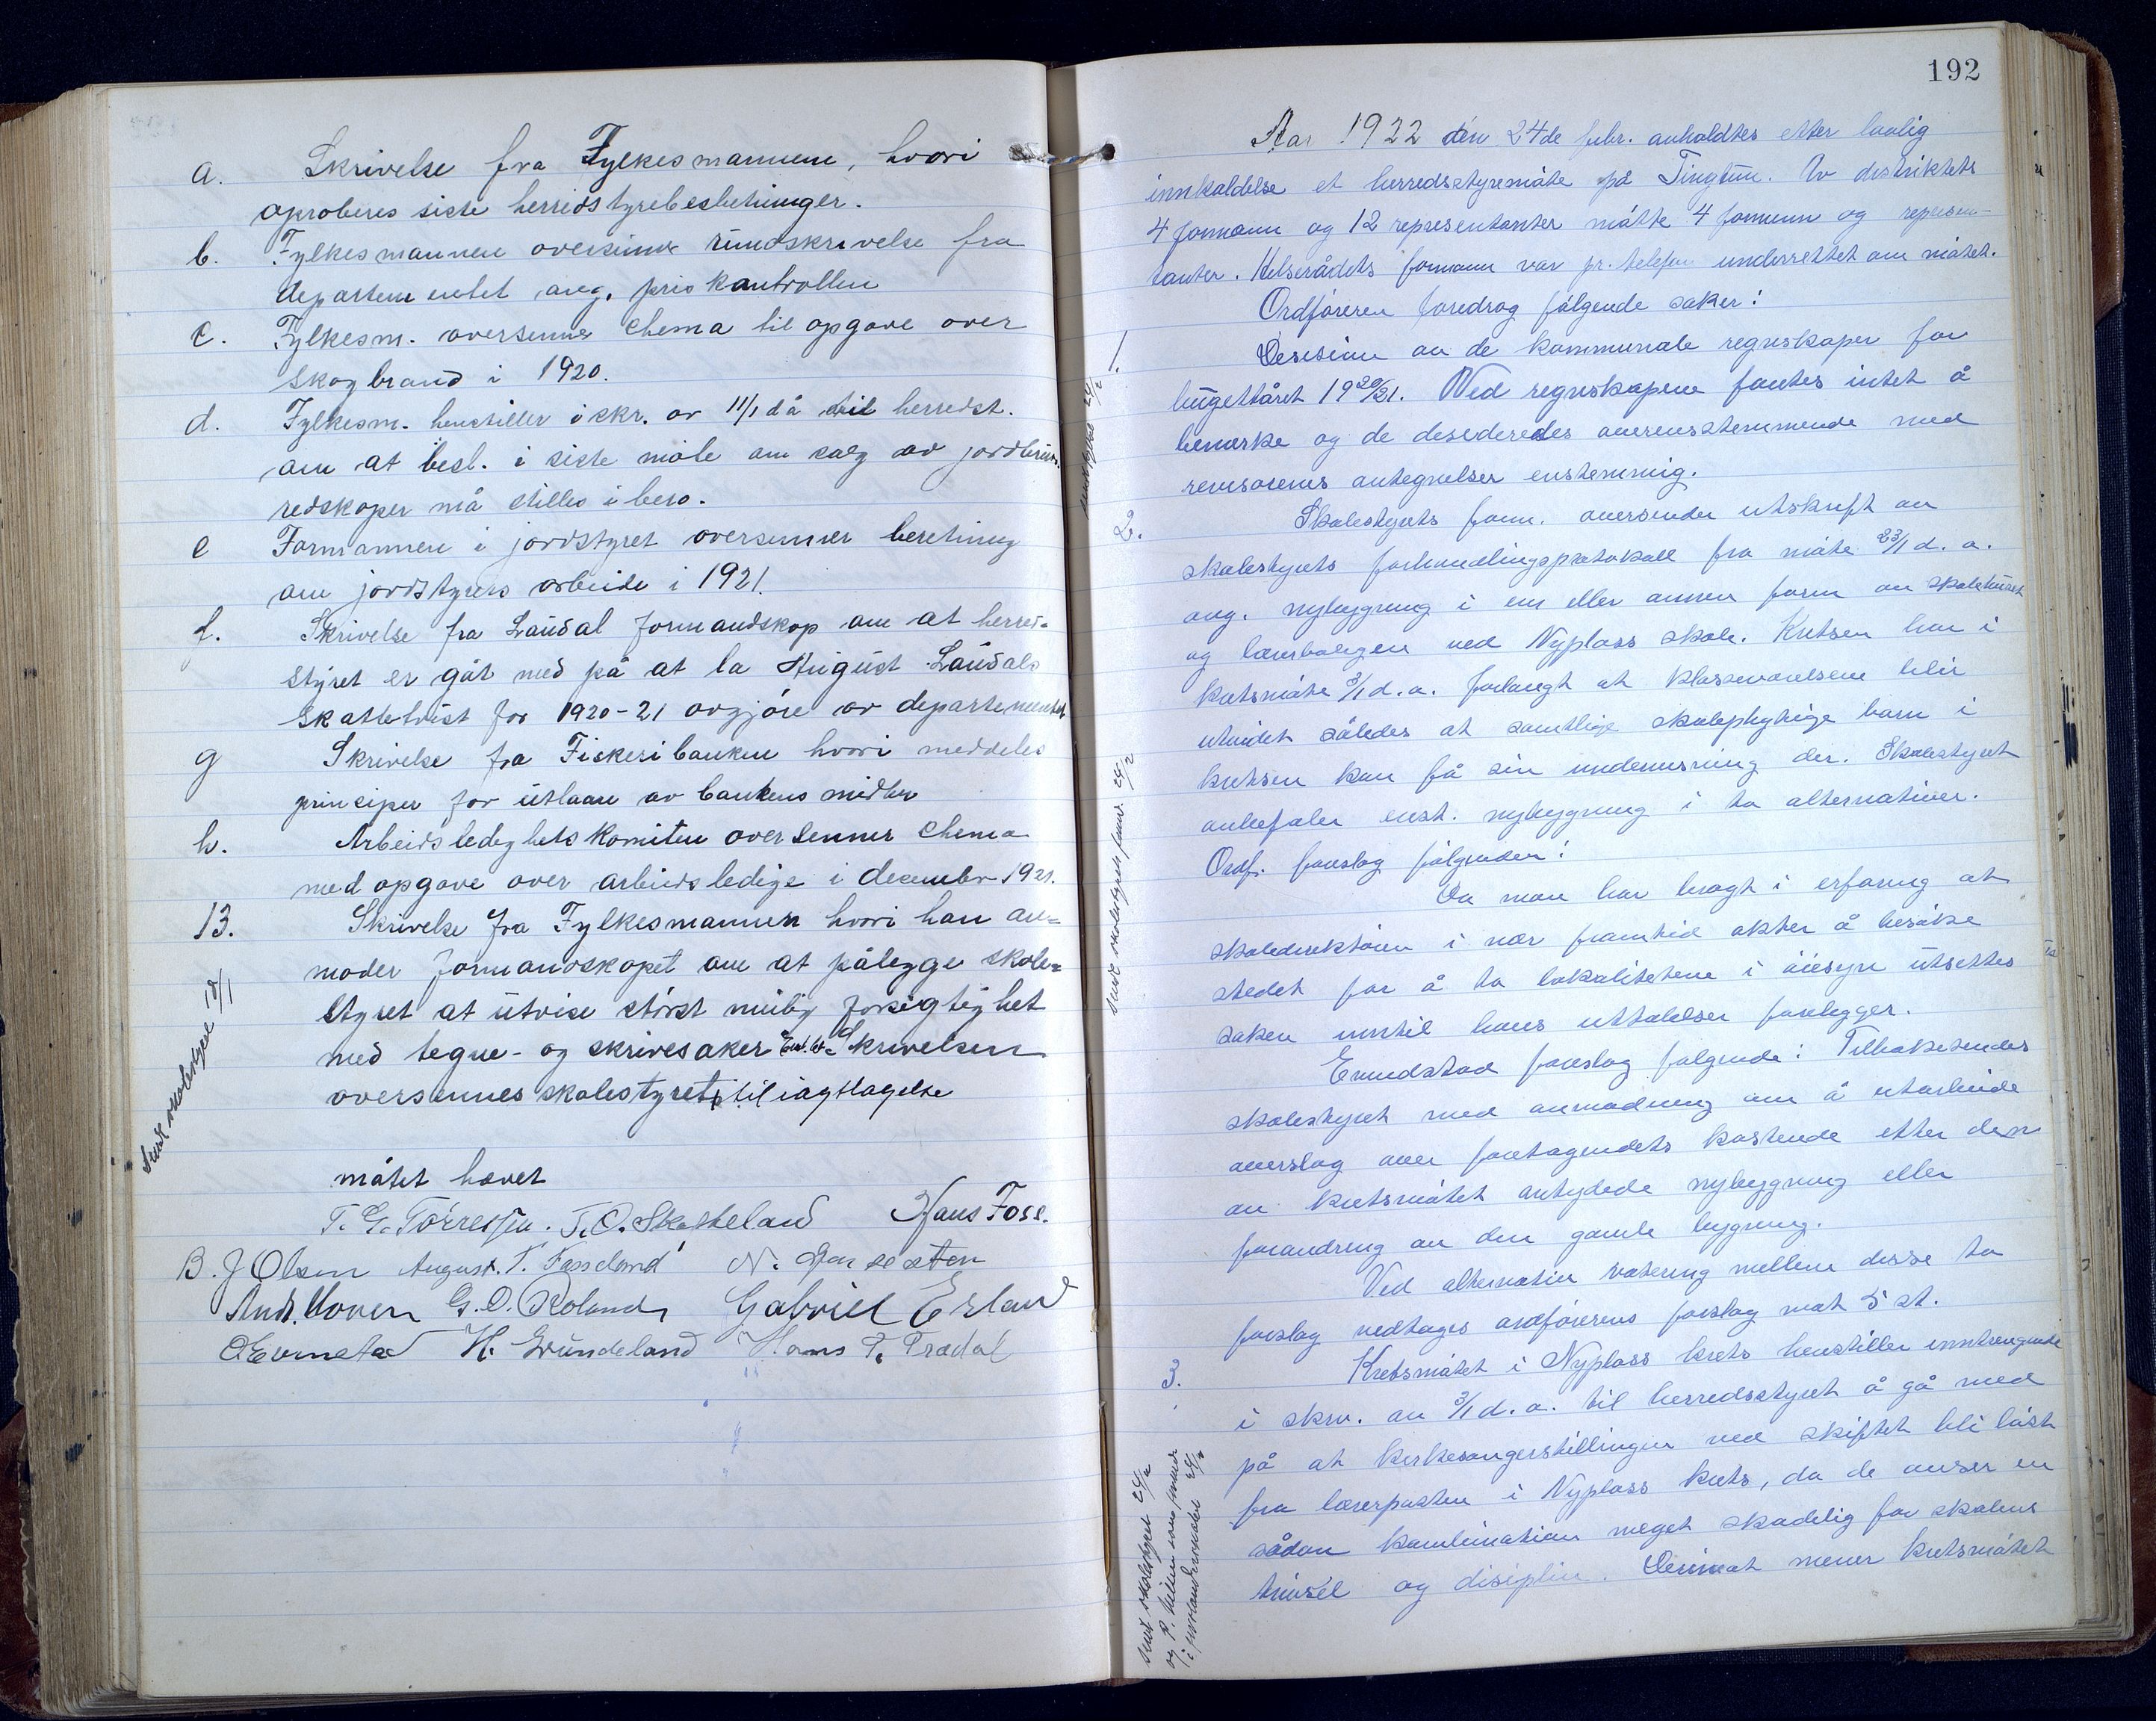 a. Skrivelse fra Fylkesmannen, hvori
aproberes siste herredstyrebeslutninger.
b. Fylkesmannen oversenner rundskrivelse fra
departementet ang. priskontrollen
c. Fylkesm. oversenner chema til opgave over
skogbrand i 1920.
d. Fylkesm. henstiller i skr. av 11/1 då til herredst.
om at besl. i siste møte om salg av jordbruks
redskaper må stilles i bero.
e Formannen i jordstyret oversenner beretning
om jordstyrets arbeide i 1921.
f. Skrivelse fra Laudal formandskap om at herred=
styret er gåt med på at la August Laudals
skattetvist for 1920-21 avgjøre av departementet
g Skrivelse fra Fiskeribanken hvori meddeles
principer for utlaan av bankens midler
h. Arbeidsledighetskomiten oversenner chema
med opgave over arbeidsledige i december 1921.
13. Skrivelse fra Fylkesmannen hvori han an=
moder formandskapet om at pålegge skole=
styret at utvise størst mulig forsigtighet
med tegne- og skrivesaker Enst. ved. Skrivelsen
oversennes skolestyret til iagttagelse
Sendt skolestyret 18/1
møtet hævet
T. G. Tørressen. T. O. Skatteland Hans Foss.
B. J Olsen August. T. Fasseland N.
Andr. Voren G. O. Roland Gabriel Erland
O Evenstad H. Grundeland Hans P. Trædal
192
Aar 1922 den 24de febr. avholdtes efter lovlig
innkaldelse et herredsstyremøte på Tingtun. Av distriktets
4 formenn og 12 representanter møtte 4 formenn og represen-
tanter. Helserådets formann var pr. telefon underrettet om møtet.
Ordføreren foredrog følgende saker:
1. Desisian av de kommunale regnskaper for
bugettåret 1920/21. Ved regnskapene fantes intet å
bemerke og de desideredes overensstemmende med
revisorenes antegnelser enstemmig.
2. Skolestyrets form. oversender utskrift av
skolestyrets forhandlingsprotokoll fra møte 23/1 d. a.
ang. nybygning i en eller annen form av skolehuset
og lærerboligen ved Nyplass skole. Kretsen har i
kretsmøte 3/1 d. a. forlangt at klasseværelsene blir
utvidet således at samtlige skolepligtige barn i
kretsen kan få sin undervisning der. Skolestyret
anbefaler enst. nybygning i to alternativer.
Ordf. foreslog følgende:
Da man har bragt i erfaring at
skoledirektøren i nær framtid akter å besøke
stedet for å ta lokalitetene i øiesyn utsettes
saken inntil hans uttalelser foreligger.
Evendstad foreslog følgende: Tilbakesendes
skolestyret med anmodning om å utarbeide
overslag over foretagendets kostende etter den
av kretsmøtet antydede nybygning eller
forandring av den gamle bygning.
Ved alternativ votering mellem disse to
forslag vedtages ordførerens forslag mot 5 st.
3. Kretsmøtet i Nyplass krets henstiller inntrengende
i skriv. av 3/1 d. a. til herredsstyret å gå med
på at kirkesangerstillingen ved skiftet bli løst
fra lærerposten i Nyplass krets, da de anser en
sådan kombination meget skadelig for skolens
trivsel og disiplin. Derimot mener kretsmøtet
sendt skolestyrets form. 24/2
sendt skolestyret 24/2